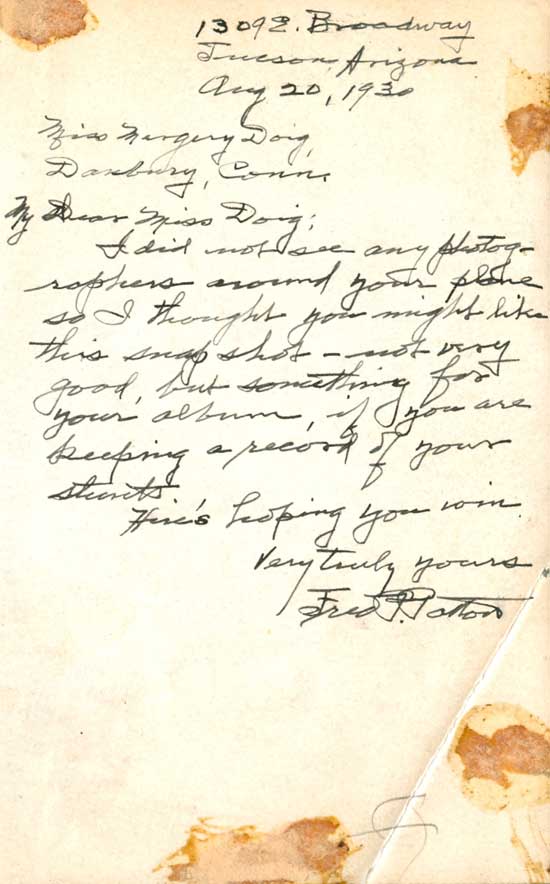 1309 E. Broadway
Tucson, Arizona
Aug 20, 1930
Miss Margery Doig,
Danbury, Conn.
My Dear Miss Doig:
I did not see any photog-
raphers around your plane
so I thought you might like
this snap shot - not very
good, but something for
your album, if you are
keeping a record of your
stunts.
Here's hoping you win.
Very truly yours
Fred P. Patton